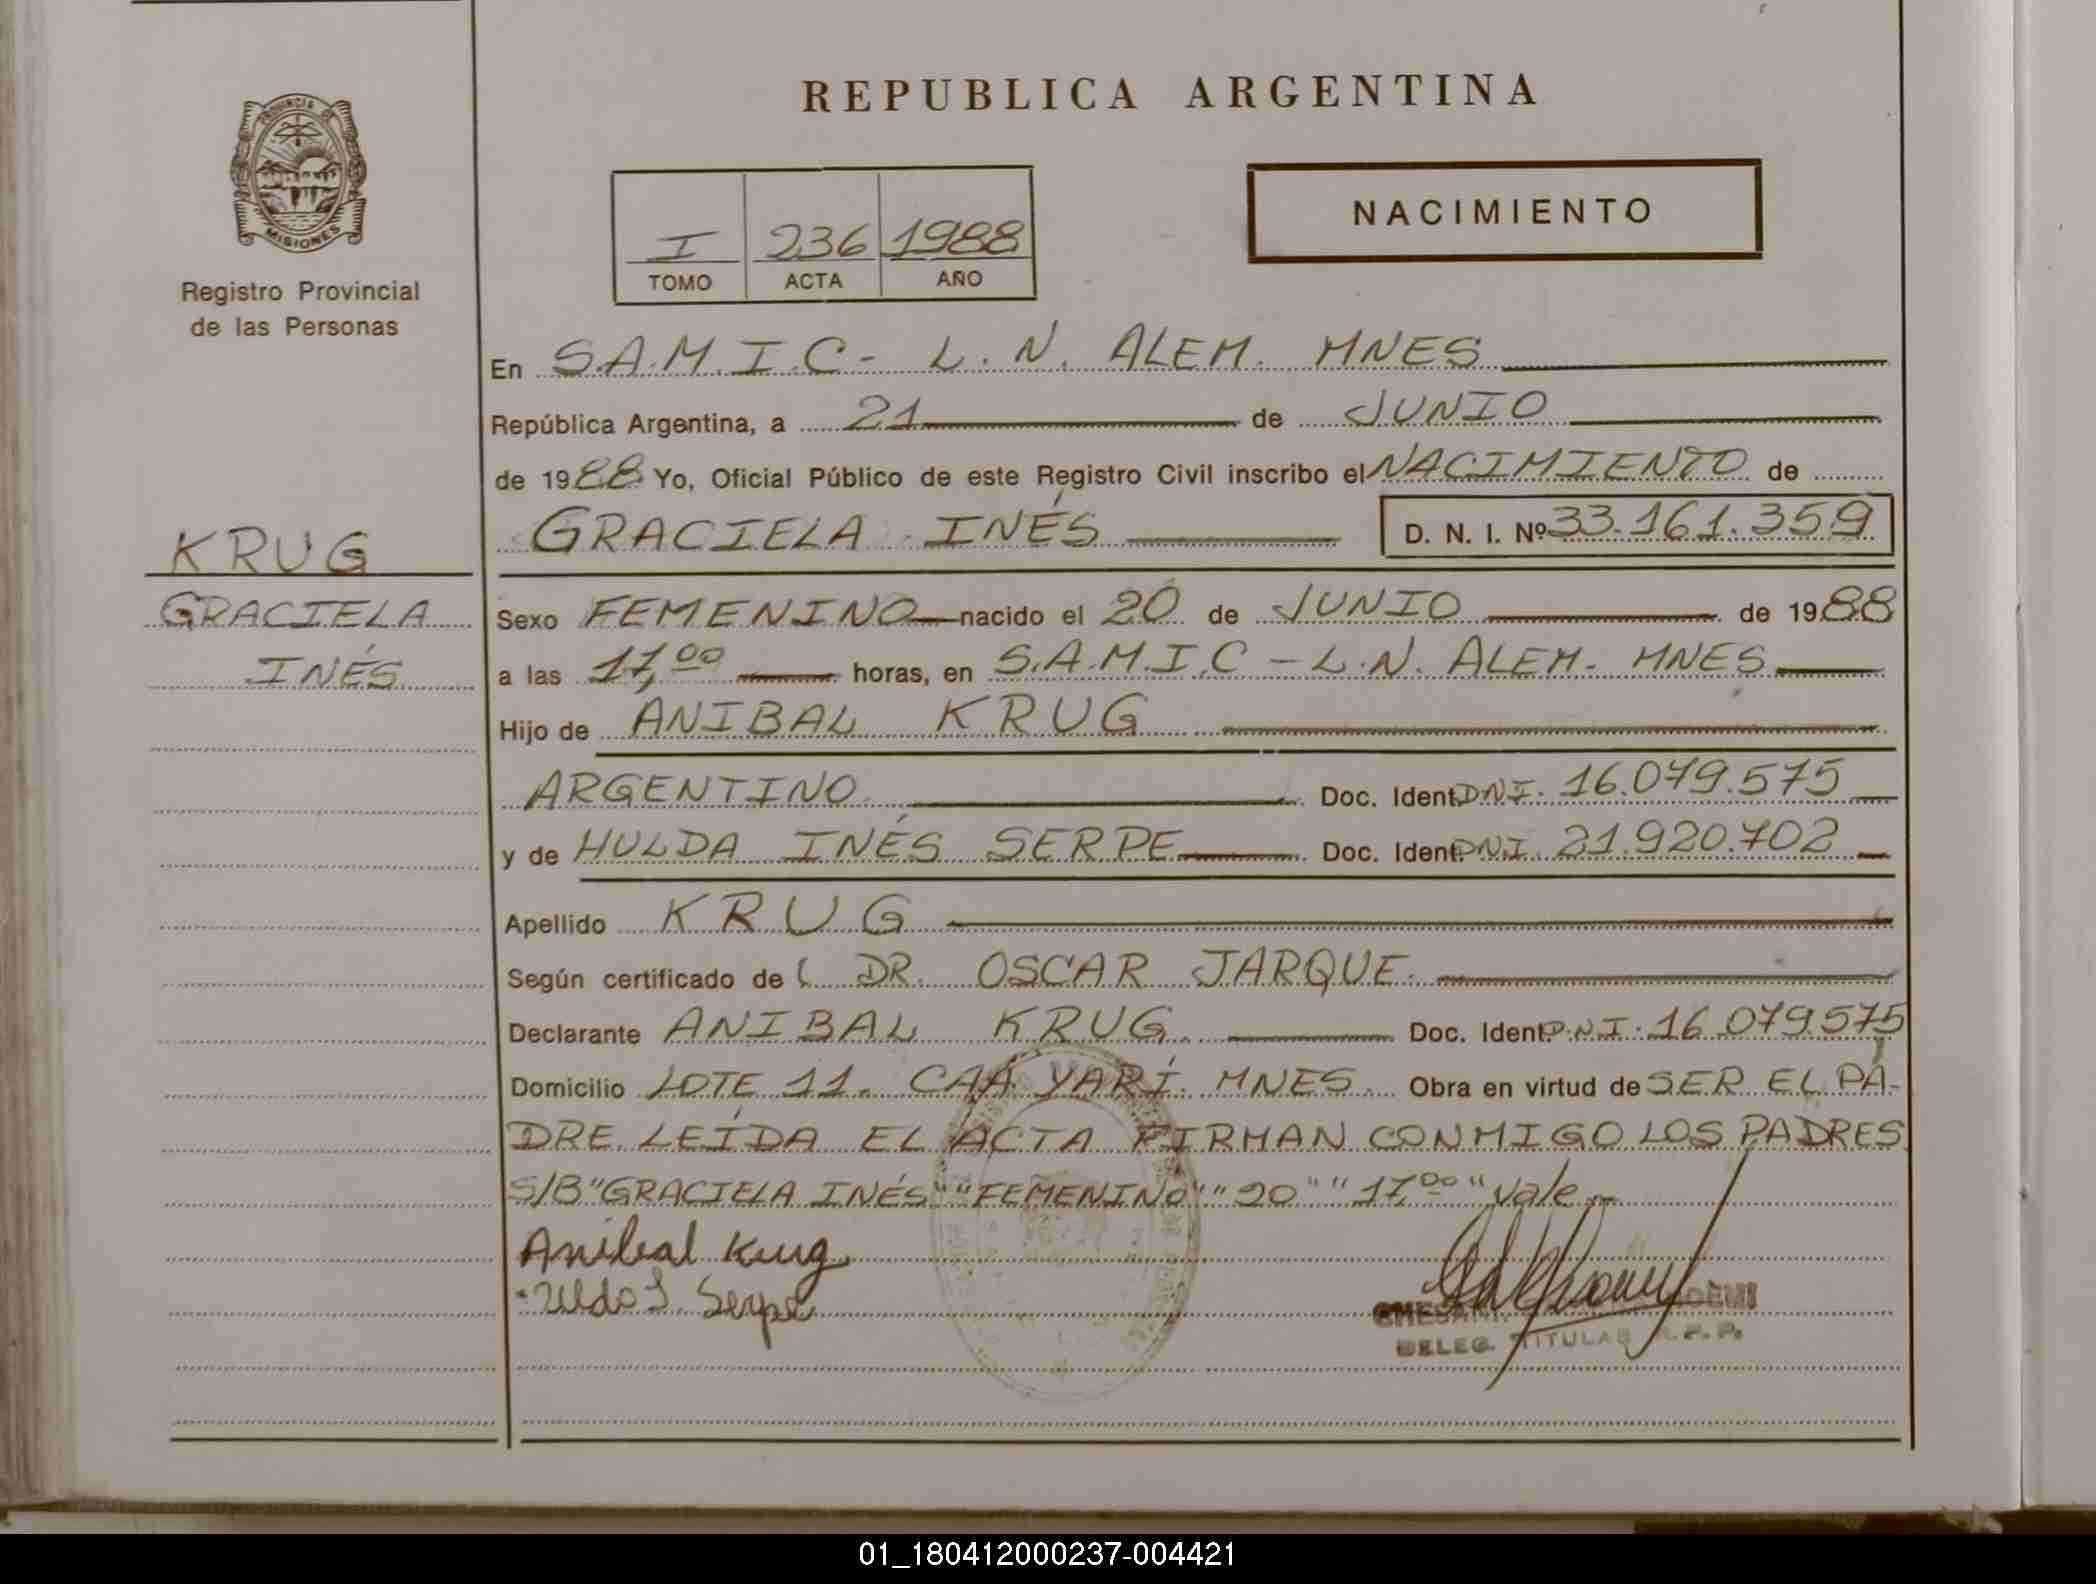 REPUBLICA ARGENTINA
PROVINCIA DE
MISIONES
Registro Provincial
de las Personas
I 236 1988
TOMO ACTA AÑO
NACIMIENTO
En S.A.M.I.C- L.N. ALEM. MNES
República Argentina, a 21 de JUNIO
de 1988 Yo, Oficial Público de este Registro Civil inscribo el NACIMIENTO de
GRACIELA INÉS D. N. I. Nº 33.161.359
KRUG
GRACIELA
INÉS
Sexo FEMENINO nacido el 20 de JUNIO de 1988
a las 17,00 horas, en S.A.M.I.C - L.N. ALEM. MNES
Hijo de ANIBAL KRUG
ARGENTINO Doc. Ident. DNI. 16.079.575
y de HULDA INÉS SERPE Doc. Ident. DNI. 21.920.702
Apellido KRUG
Según certificado de ( DR. OSCAR JARQUE.
Declarante ANIBAL KRUG. Doc. Ident. D.N.I. 16.079.575
Domicilio LOTE 11. CAÁ YARÍ. MNES. Obra en virtud de SER EL PA-
DRE. LEÍDA EL ACTA FIRMAN CONMIGO LOS PADRES
S/B "GRACIELA INÉS" "FEMENINO" "20" "17,00" Vale.-
Anibal Krug
Serpe
DELEG. TITULAR R.P.P.
01_180412000237-004421